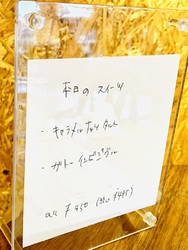 本日の スイーツ
・キャラメルナッツタルト
・ガトーインビジブル
all ¥450 (税込¥495)